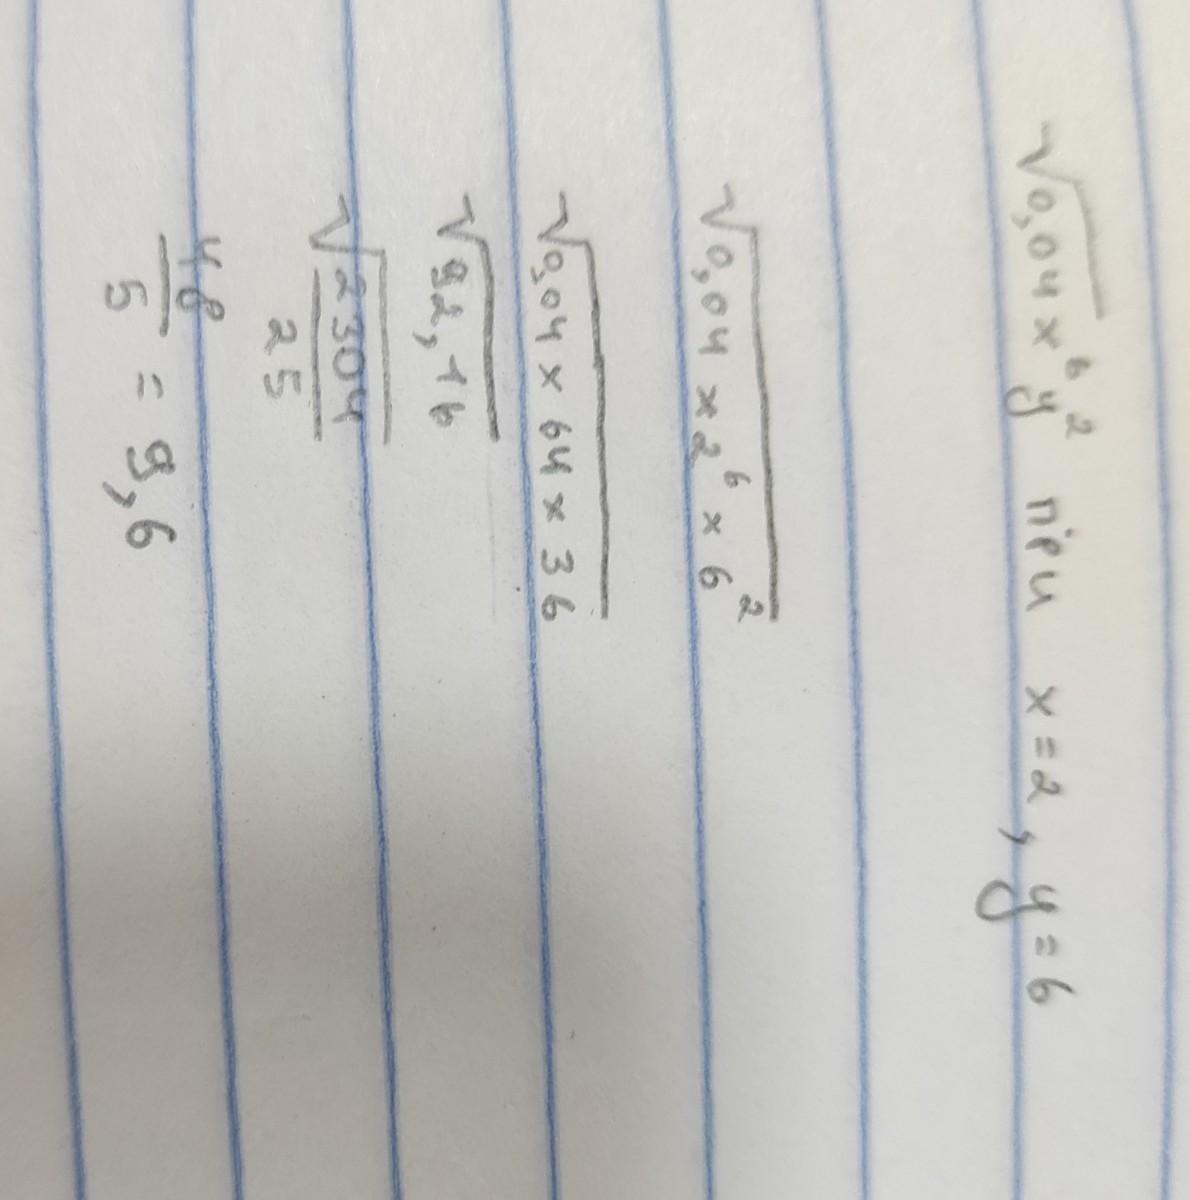 √0,04x⁶y² при x=2, y=6
√0,04 x 2⁶ x 6²
√0,04 x 64 x 36
√92,16
√2304/25
48/5 = 9,6